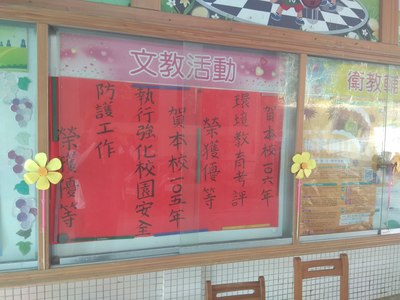 文教活動
賀本校一○六年
環境教育考評
榮獲優等
賀本校一○五年
執行強化校園安全
防護工作
榮獲優等
衛教